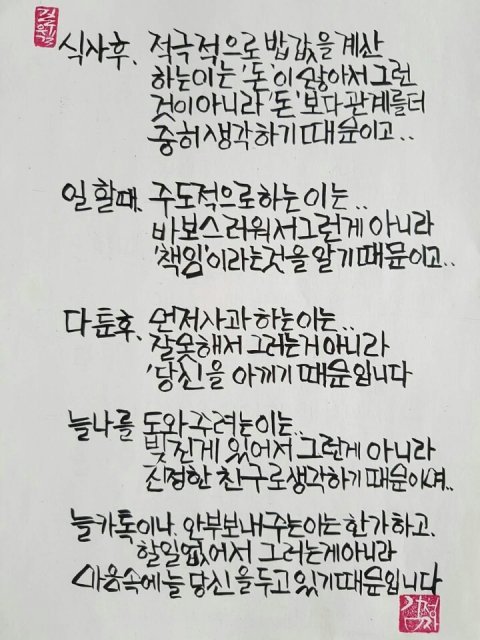 식사후. 적극적으로 밥값을 계산
하는이는 '돈'이 많아서 그런
것이 아니라 '돈'보다 관계를 더
중히 생각하기 때문이고..
일 할때. 주도적으로 하는 이는..
바보스러워서 그런게 아니라
'책임'이라는것을 알기 때문이고..
다툰후. 먼저사과 하는이는..
잘못해서 그러는거 아니라
'당신'을 아끼기 때문입니다
늘나를 도와 주려는이는..
빚진게 있어서 그런게 아니라
진정한 친구로 생각하기 때문이며..
늘카톡이나. 안부보내주는이는 한가하고.
할일없어서 그러는게아니라
마음속에늘 당신을두고 있기때문입니다